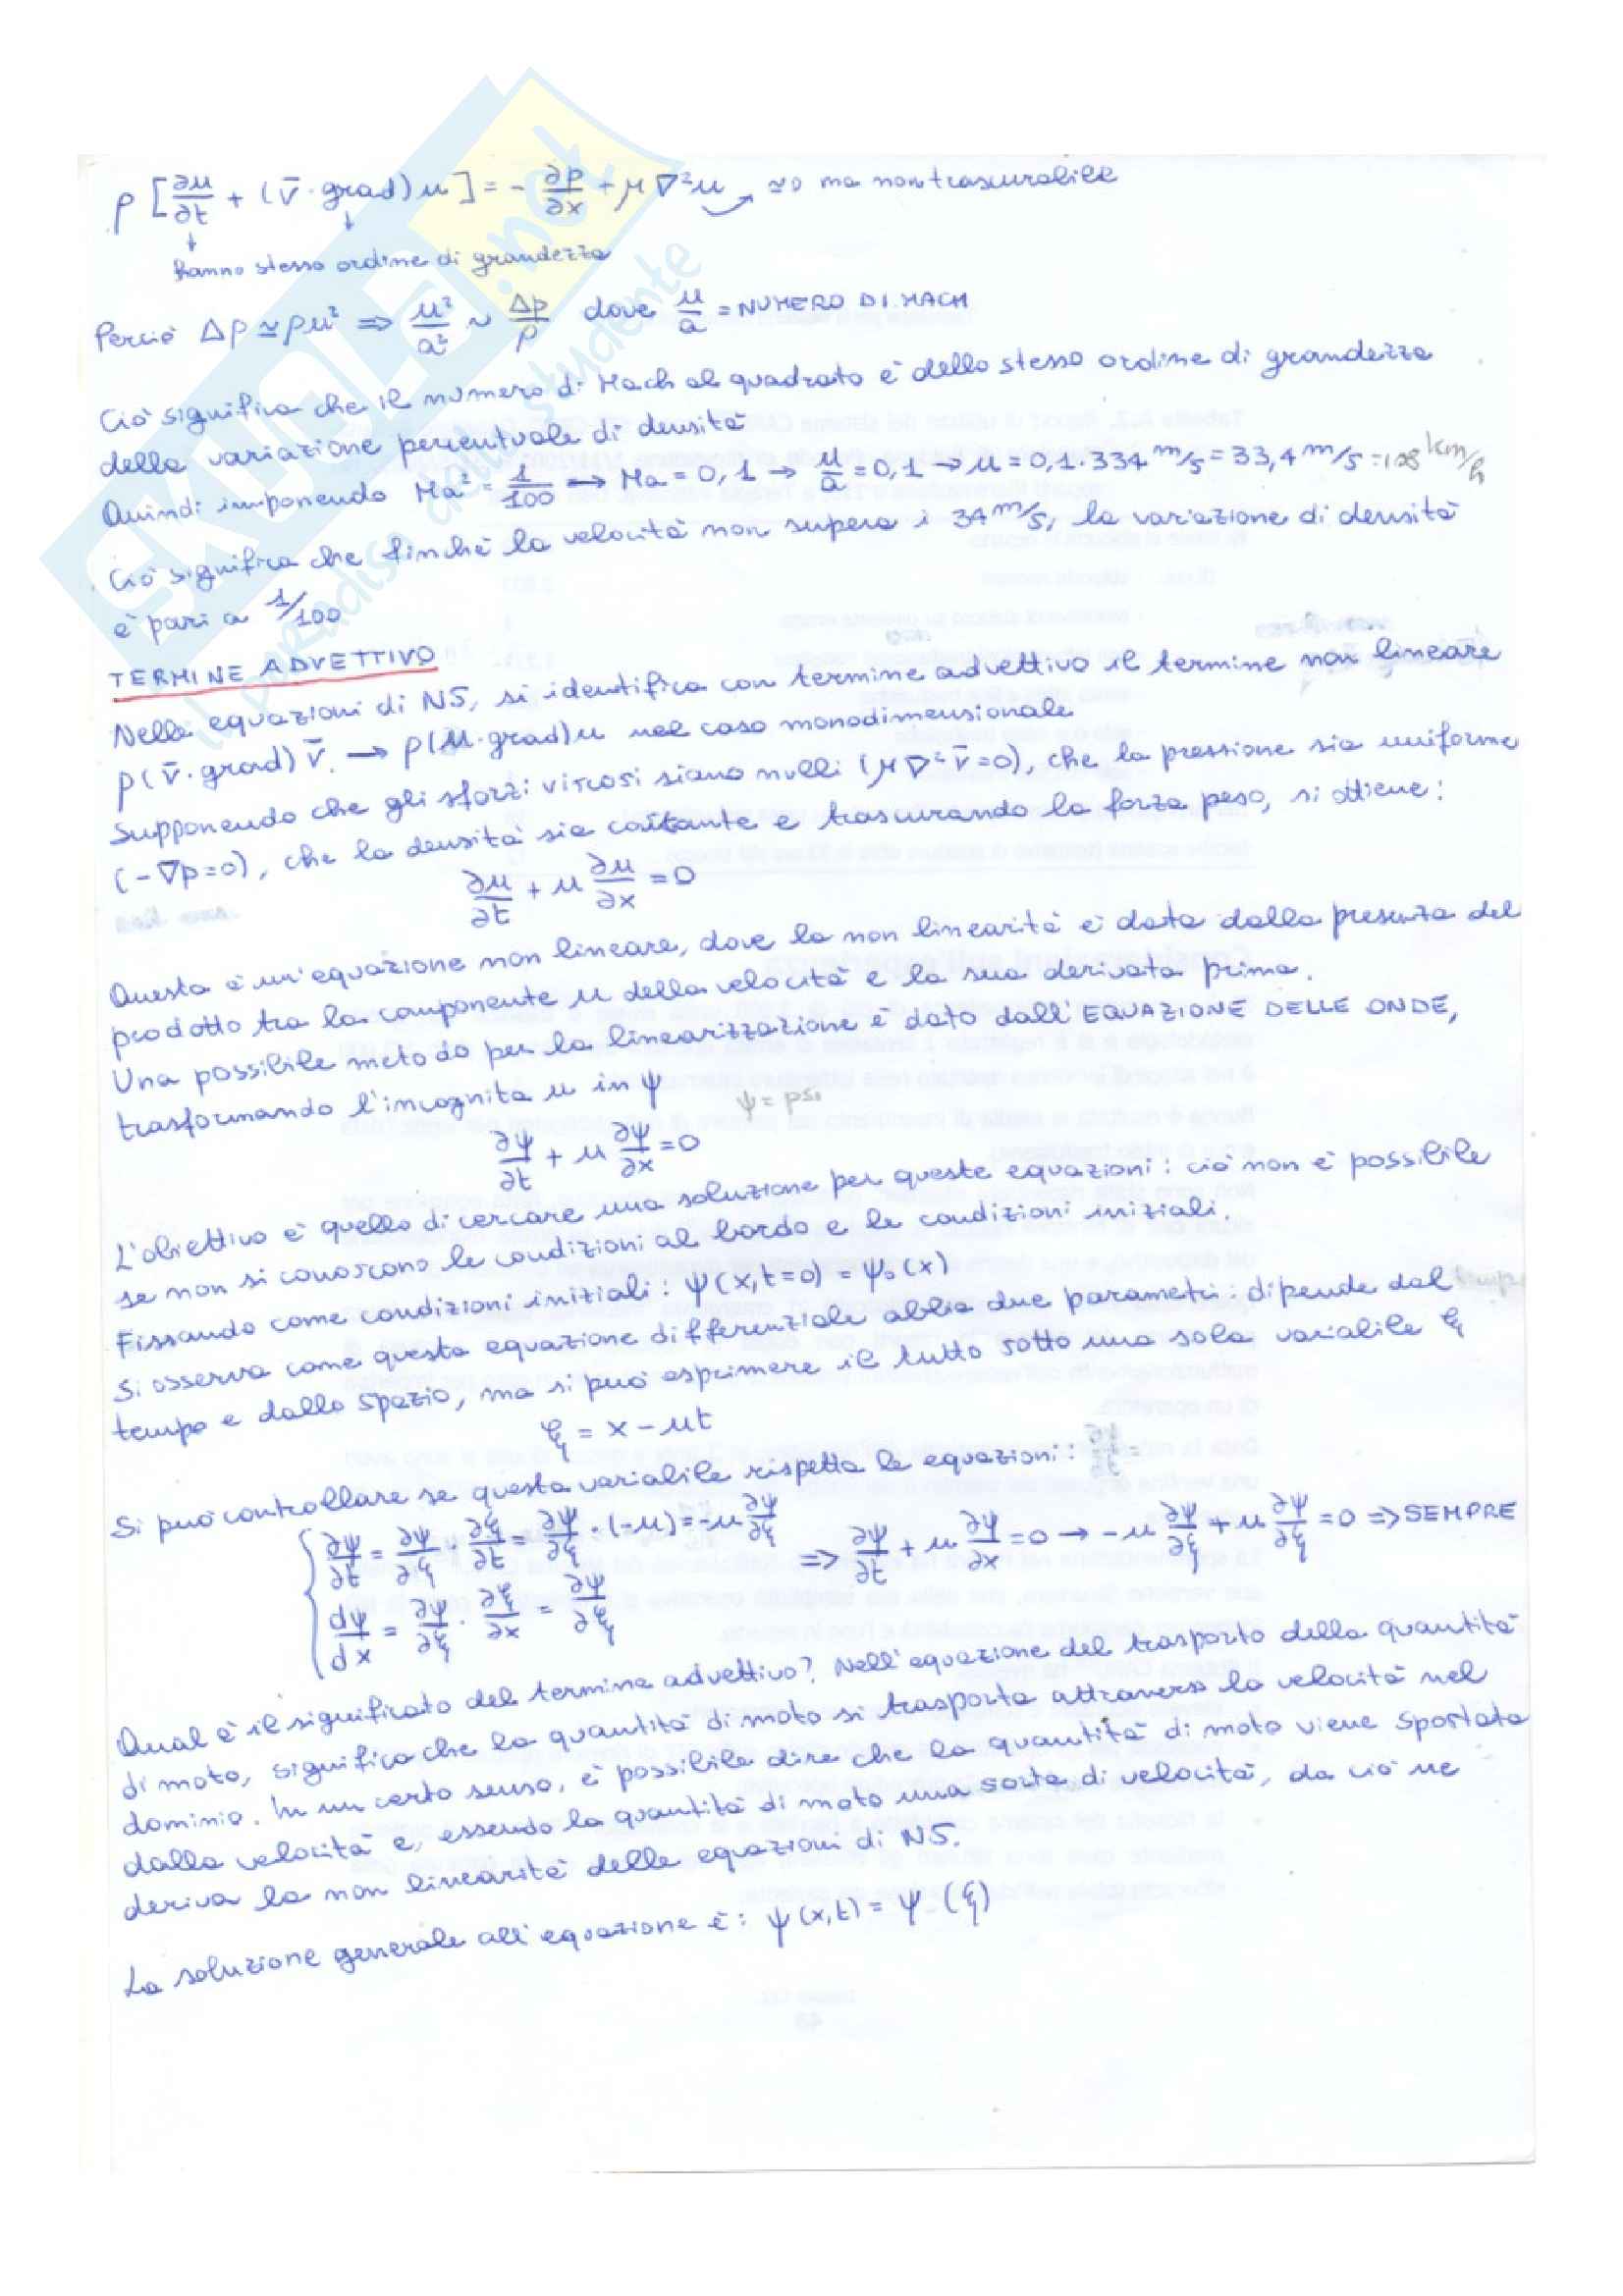 ρ [∂u/∂t + (v̄ · grad) u] = - ∂p/∂x + μ ∇²u → ≃0 ma non trascurabile
hanno stesso ordine di grandezza
Perciò Δp ≃ ρu² ⇒ u²/a² ~ Δρ/ρ dove u/a = NUMERO DI MACH
Ciò significa che il numero di Mach al quadrato è dello stesso ordine di grandezza
della variazione percentuale di densità
Quindi imponendo Ma² = 1/100 → Ma = 0,1 → u/a = 0,1 → u = 0,1 · 334 m/s = 33,4 m/s = 108 km/h
Ciò significa che finchè la velocità non supera i 34 m/s, la variazione di densità
è pari a 1/100
TERMINE ADVETTIVO
Nelle equazioni di NS, si identifica con termine advettivo il termine non lineare
ρ(v̄ · grad) v̄. → ρ(u · grad)u nel caso monodimensionale
Supponendo che gli sforzi viscosi siano nulli (μ∇²v̄=0), che la pressione sia uniforme
(-∇p=0), che la densità sia costante e trascurando la forza peso, si ottiene:
∂u/∂t + u ∂u/∂x = 0
Questa è un'equazione non lineare, dove la non linearità è data dalla presenza del
prodotto tra la componente u della velocità e la sua derivata prima.
Una possibile metodo per la linearizzazione è dato dall'EQUAZIONE DELLE ONDE,
trasformando l'incognita u in ψ ψ = psi
∂ψ/∂t + u ∂ψ/∂x = 0
L'obiettivo è quello di cercare una soluzione per queste equazioni: ciò non è possibile
se non si conoscono le condizioni al bordo e le condizioni iniziali.
Fissando come condizioni iniziali: ψ(x,t=0) = ψ₀(x)
Si osserva come questa equazione differenziale abbia due parametri: dipende dal
tempo e dallo spazio, ma si può esprimere il tutto sotto una sola variabile ξ
ξ = x - ut
Si può controllare se questa variabile rispetta le equazioni:
∂ψ/∂t = ∂ψ/∂ξ · ∂ξ/∂t = ∂ψ/∂ξ · (-u) = -u ∂ψ/∂ξ ⇒ ∂ψ/∂t + u ∂ψ/∂x = 0 → -u ∂ψ/∂ξ + u ∂ψ/∂ξ = 0 ⇒ SEMPRE
dψ/dx = ∂ψ/∂ξ · ∂ξ/∂x = ∂ψ/∂ξ
Qual è il significato del termine advettivo? Nell'equazione del trasporto della quantità
di moto, significa che la quantità di moto si trasporta attraverso la velocità nel
dominio. In un certo senso, è possibile dire che la quantità di moto viene spostata
dalla velocità e, essendo la quantità di moto una sorta di velocità, da ciò ne
deriva la non linearità delle equazioni di NS.
La soluzione generale all'equazione è: ψ(x,t) = ψ(ξ)
SKUOLA.net
il paradiso dello studente